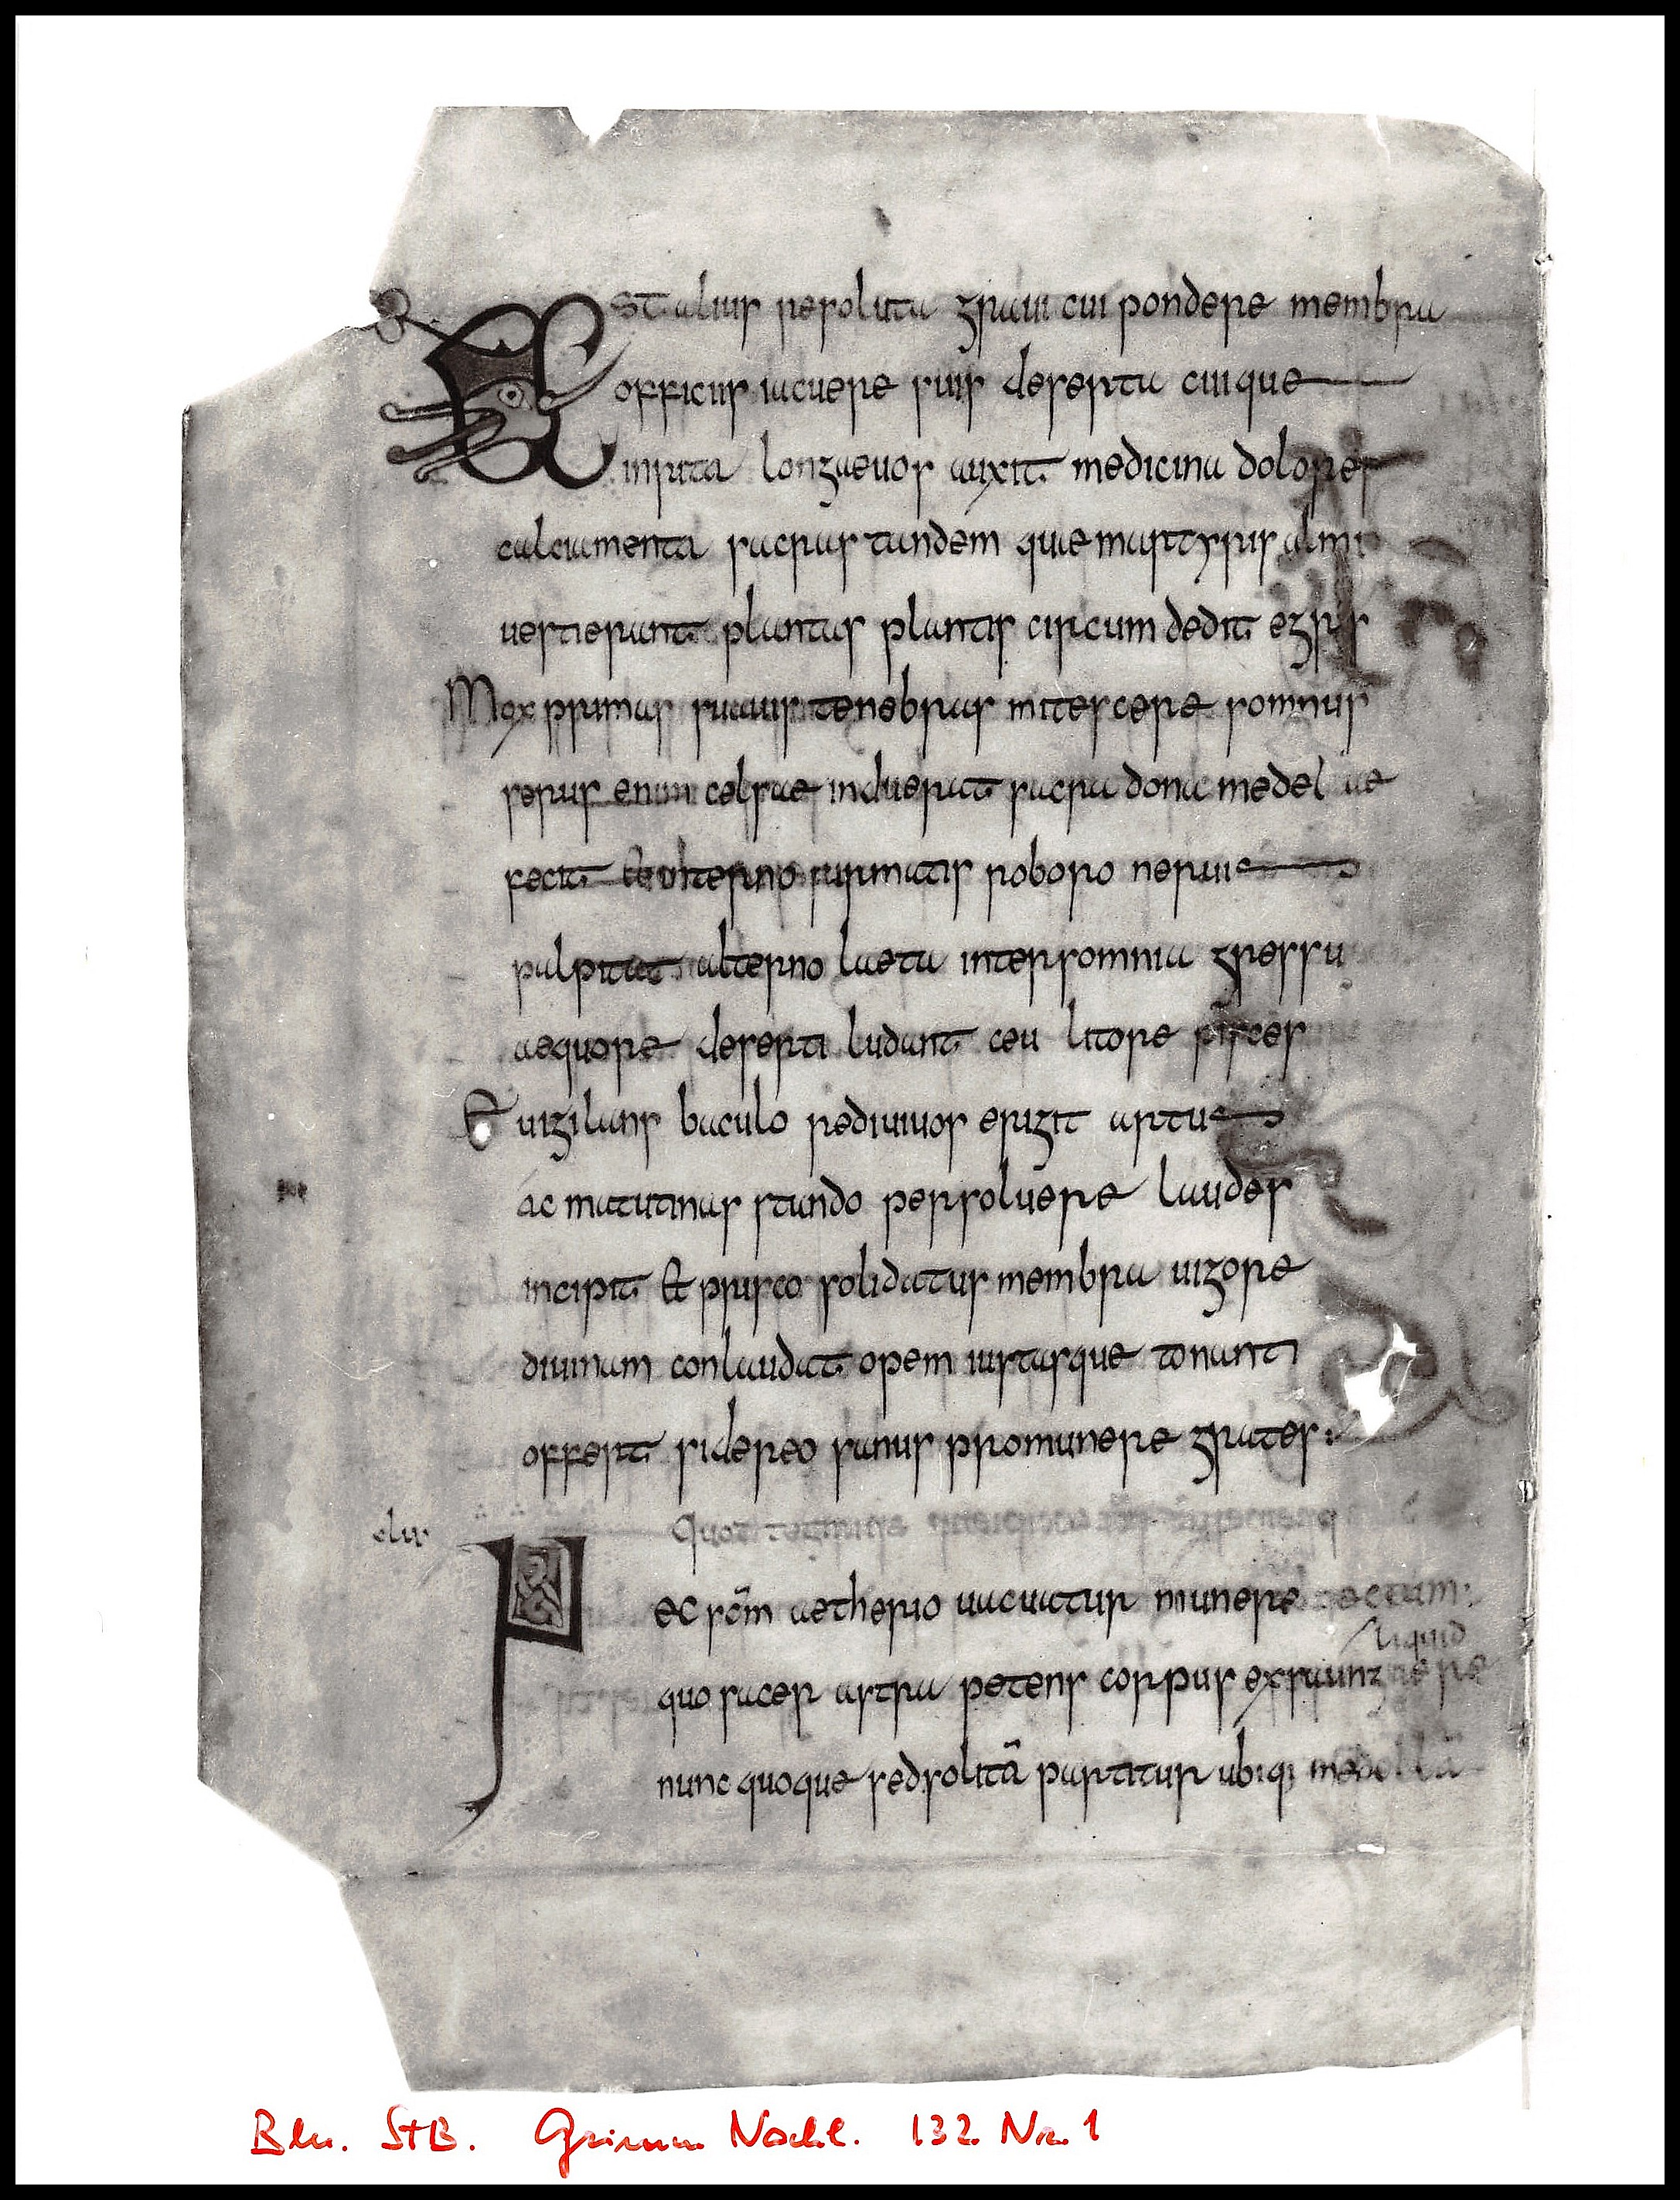 Est alius resoluta graui cui pondere membra
officiis iacuere suis deserta cuique
inrita longaeuos auxit medicina dolores
calciamenta sacras tandem quae martyris almi
uestierant plantas plantis circumdedit egris
Mox primas suauis tenebras mitescere somnus
serus enim celsae induerat sacra dona medelae
fecit et alterno surmatis roboro neruis
palpitat alterno laeta inter somnia gressu
aequore deserti ludant ceu litore pisces
Et uigilans baculo rediuiuos erigit artus
ac matutinas stando persoluere laudes
incipit et prisco solidatus membra uigore
diuinam conlaudat opem iustasque tonanti
offert sidereo sanus pro munere grates:
xlv
Nec scm̄ aetherio uacuatur munere tectum:
liquid
quo sacer astra petens corpus exsaung uere
nunc quoque sed solitā partitur ubiq; medellā
Bln. StB. Grimm Nachl. 132 Nr. 1